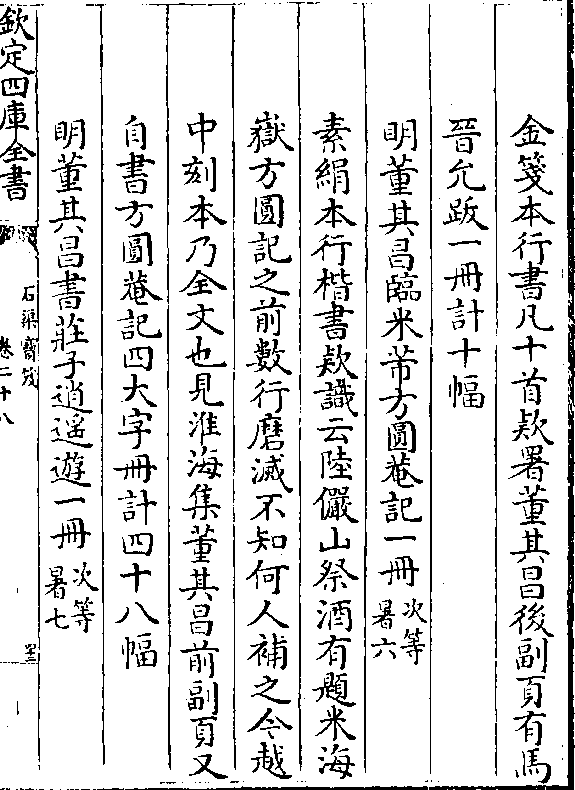 金箋本行書凡十首款署董其昌後副頁有馬
晉允跋一冊計十幅
明董其昌臨米芾方圓菴記一冊次等暑六
素絹本行楷書款識云陸儼山祭酒有題米海
嶽方圓記之前數行磨滅不知何人補之今越
中刻本乃全文也見淮海集董其昌前副頁又
自書方圓菴記四大字冊計四十八幅
明董其昌書莊子逍遥遊一冊次等暑七
欽定四庫全書
石渠寶笈
卷二十八